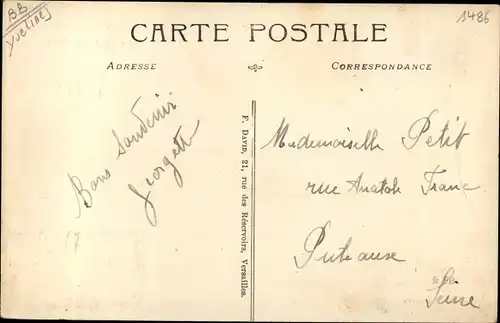 BB
YVELINES
1486
CARTE POSTALE
ADRESSE
CORRESPONDANCE
Bons Souvenir
Georgette
F. DAVID, 21, rue des Réservoirs, Versailles.
Mademoiselle Petit
rue Anatole Franc
Puteause
Seine